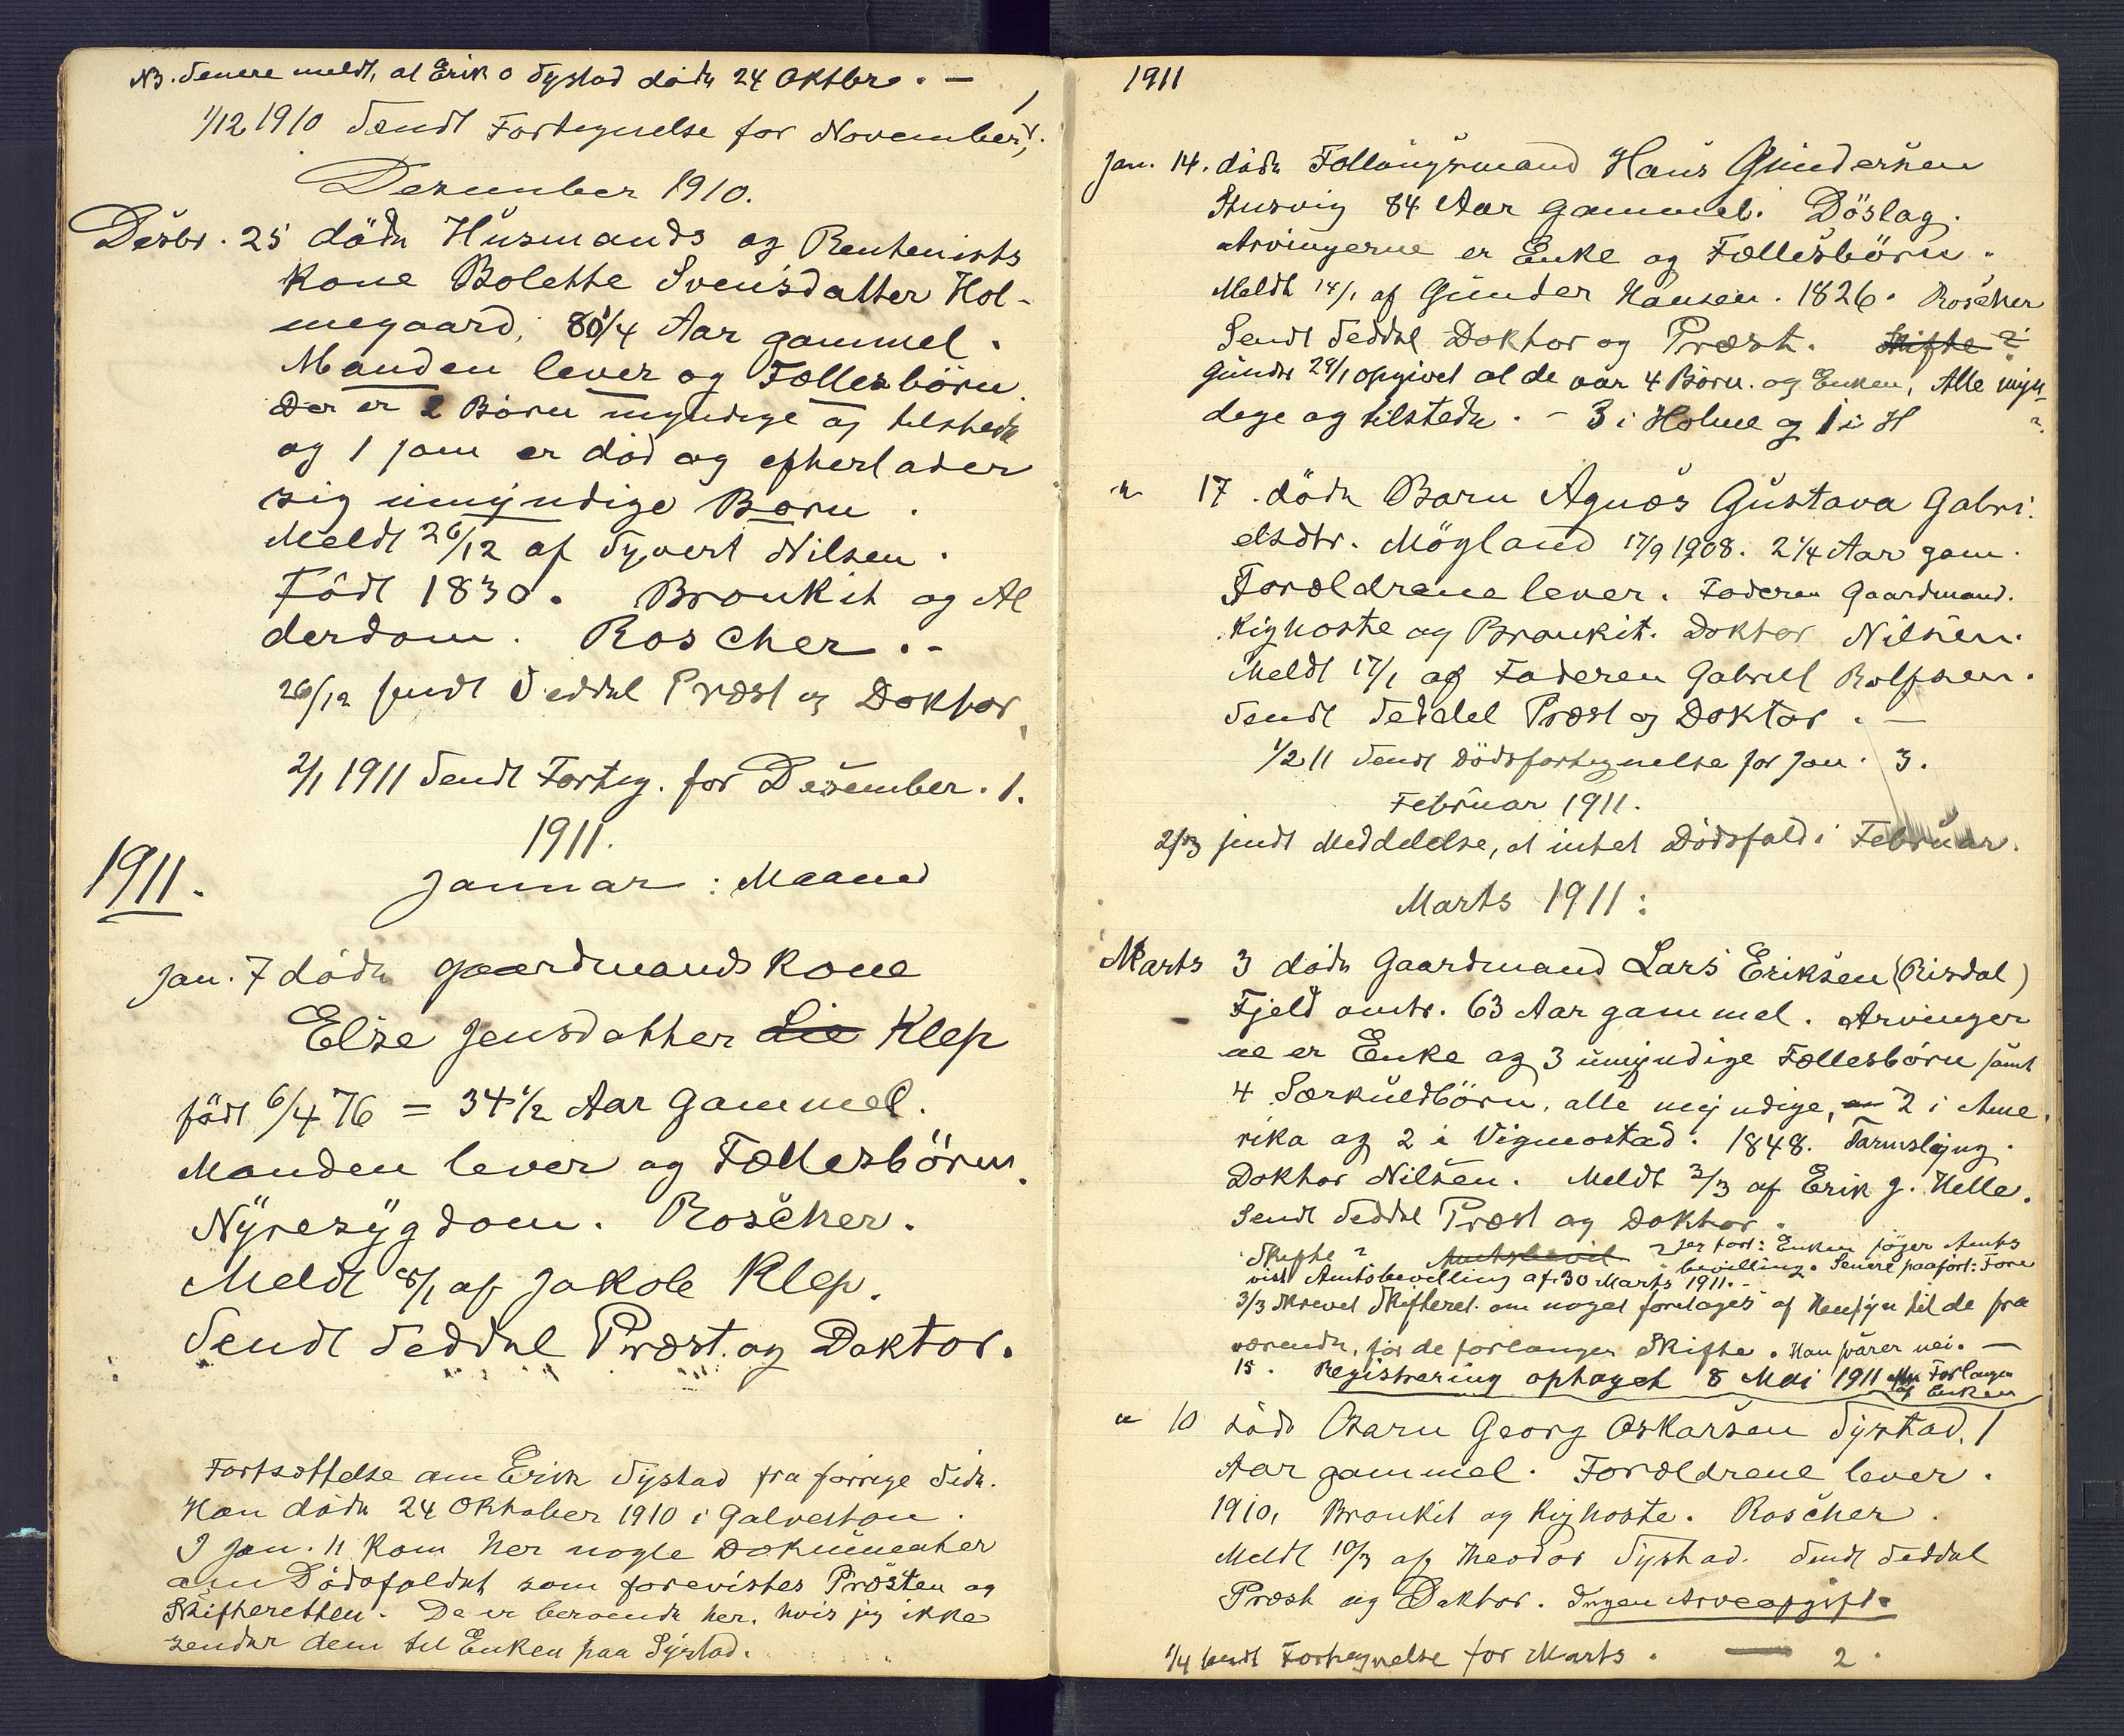 NB. Senere meldt, at Erik O Systad döde 24 Oktbr. —
1/12 1910 Sendt Fortegnelse for November, 1.
Desember 1910.
Desbr. 25 döde Husmands og Rentenists
Kone Bolette Svensdatter Hol-
megaard, 80 1/4 Aar gammel.
Manden lever og Fællesbörn.
Der er 2 Börn myndige og tilstede
og 1 som er död og efterlader
sig umyndige Börn.
Meldt 26/12 af Syvert Nilsen.
Födt 1830. Bronkit og Al
derdom. Roscher. -
26/12 sendt Seddel Præst og Doktor.
2/1 1911 Sendt Forteg. for Desember. 1.
1911.
1911.
Januar: Maaned
Jan. 7 döde gaardmandskone
Else Jensdatter Lie Klep
födt 6/4 76 = 34 1/2 Aar gammel.
Manden lever og Fællesbörn.
Nyresygdom. Roscher.
Meldt 8/1 af Jakob Klep.
Sendt Seddel Præst og Doktor.
Fortsættelse om Erik Systad fra forrige Side.
Han döde 24 Oktober 1910 i Galveston.
I Jan. 11 kom her nogle Dokumenter
om Dödsfaldet som forevistes Præsten og
Skifteretten. De er beroende her, hvis jeg ikke
sender dem til Enken paa Systad.
1911
Jan. 14. döde Follaugsmand Hans Gundersen
Stusvig 84 Aar gammel. Döslag.
Arvingerne er Enke og Fællesbörn.
Meldt 14/1 af Gunder Hansen. 1826. Roscher
Sendt Seddel Doktor og Præst. Skifte?
Gunder 28/1 opgivet at de var 4 Börn og Enken, Alle myn-
dige og tilstede. - 3 i Holme og 1 i H
" 17. döde Barn Agnes Gustava Gabri-
elsdtr. Mögland 17/9 1908. 2 1/4 Aar gam.
Forældrene lever. Faderen Gaardmand.
Kighoste og Bronkit. Doktor Nilsen.
Meldt 17/1 af Faderen Gabriel Rolfsen.
Sendt Seddel Præst og Doktor. —
1/2 11 Sendt Dödsfortegnelse for Jan. 3.
Februar 1911.
2/3 sendt Meddelelse, at intet Dödsfald i Februar.
Marts 1911:
Marts 3 döde Gaardmand Lars Eriksen (Risdal)
Fjeld omtr. 63 Aar gammel. Arvinger
ne er Enke og 3 umyndige Fællesbörn samt
4 Særkuldbörn, alle myndige, 2 i Ame
rika og 2 i Vigmostad. 1848. Tarmslyng.
Doktor Nilsen. Meldt 3/3 af Erik G. Helle.
Sendt Seddel Præst og Doktor.
Skifte? Amtsbevil ? : Enken söger Amts
bevilling. Senere paafört: Fore
vist Amtsbevilling af 30 Marts 1911. -
3/3 skrevet Skifteret. om noget foretages af Hensyn til de fra
værende, för de forlanger Skifte. Han svarer nei. —
15. Registrering optaget 8 Mai 1911 efter Forlangen
af Enken
" 10 döde Barn Georg Oskarsen Systad, 1
Aar gammel. Forældrene lever.
1910, Bronkit og Kighoste. Roscher.
Meldt 10/3 af Theodor Systad. Sendt Seddel
Præst og Doktor. Ingen Arveafgift.
1/4 sendt Fortegnelse for Marts. — 2.